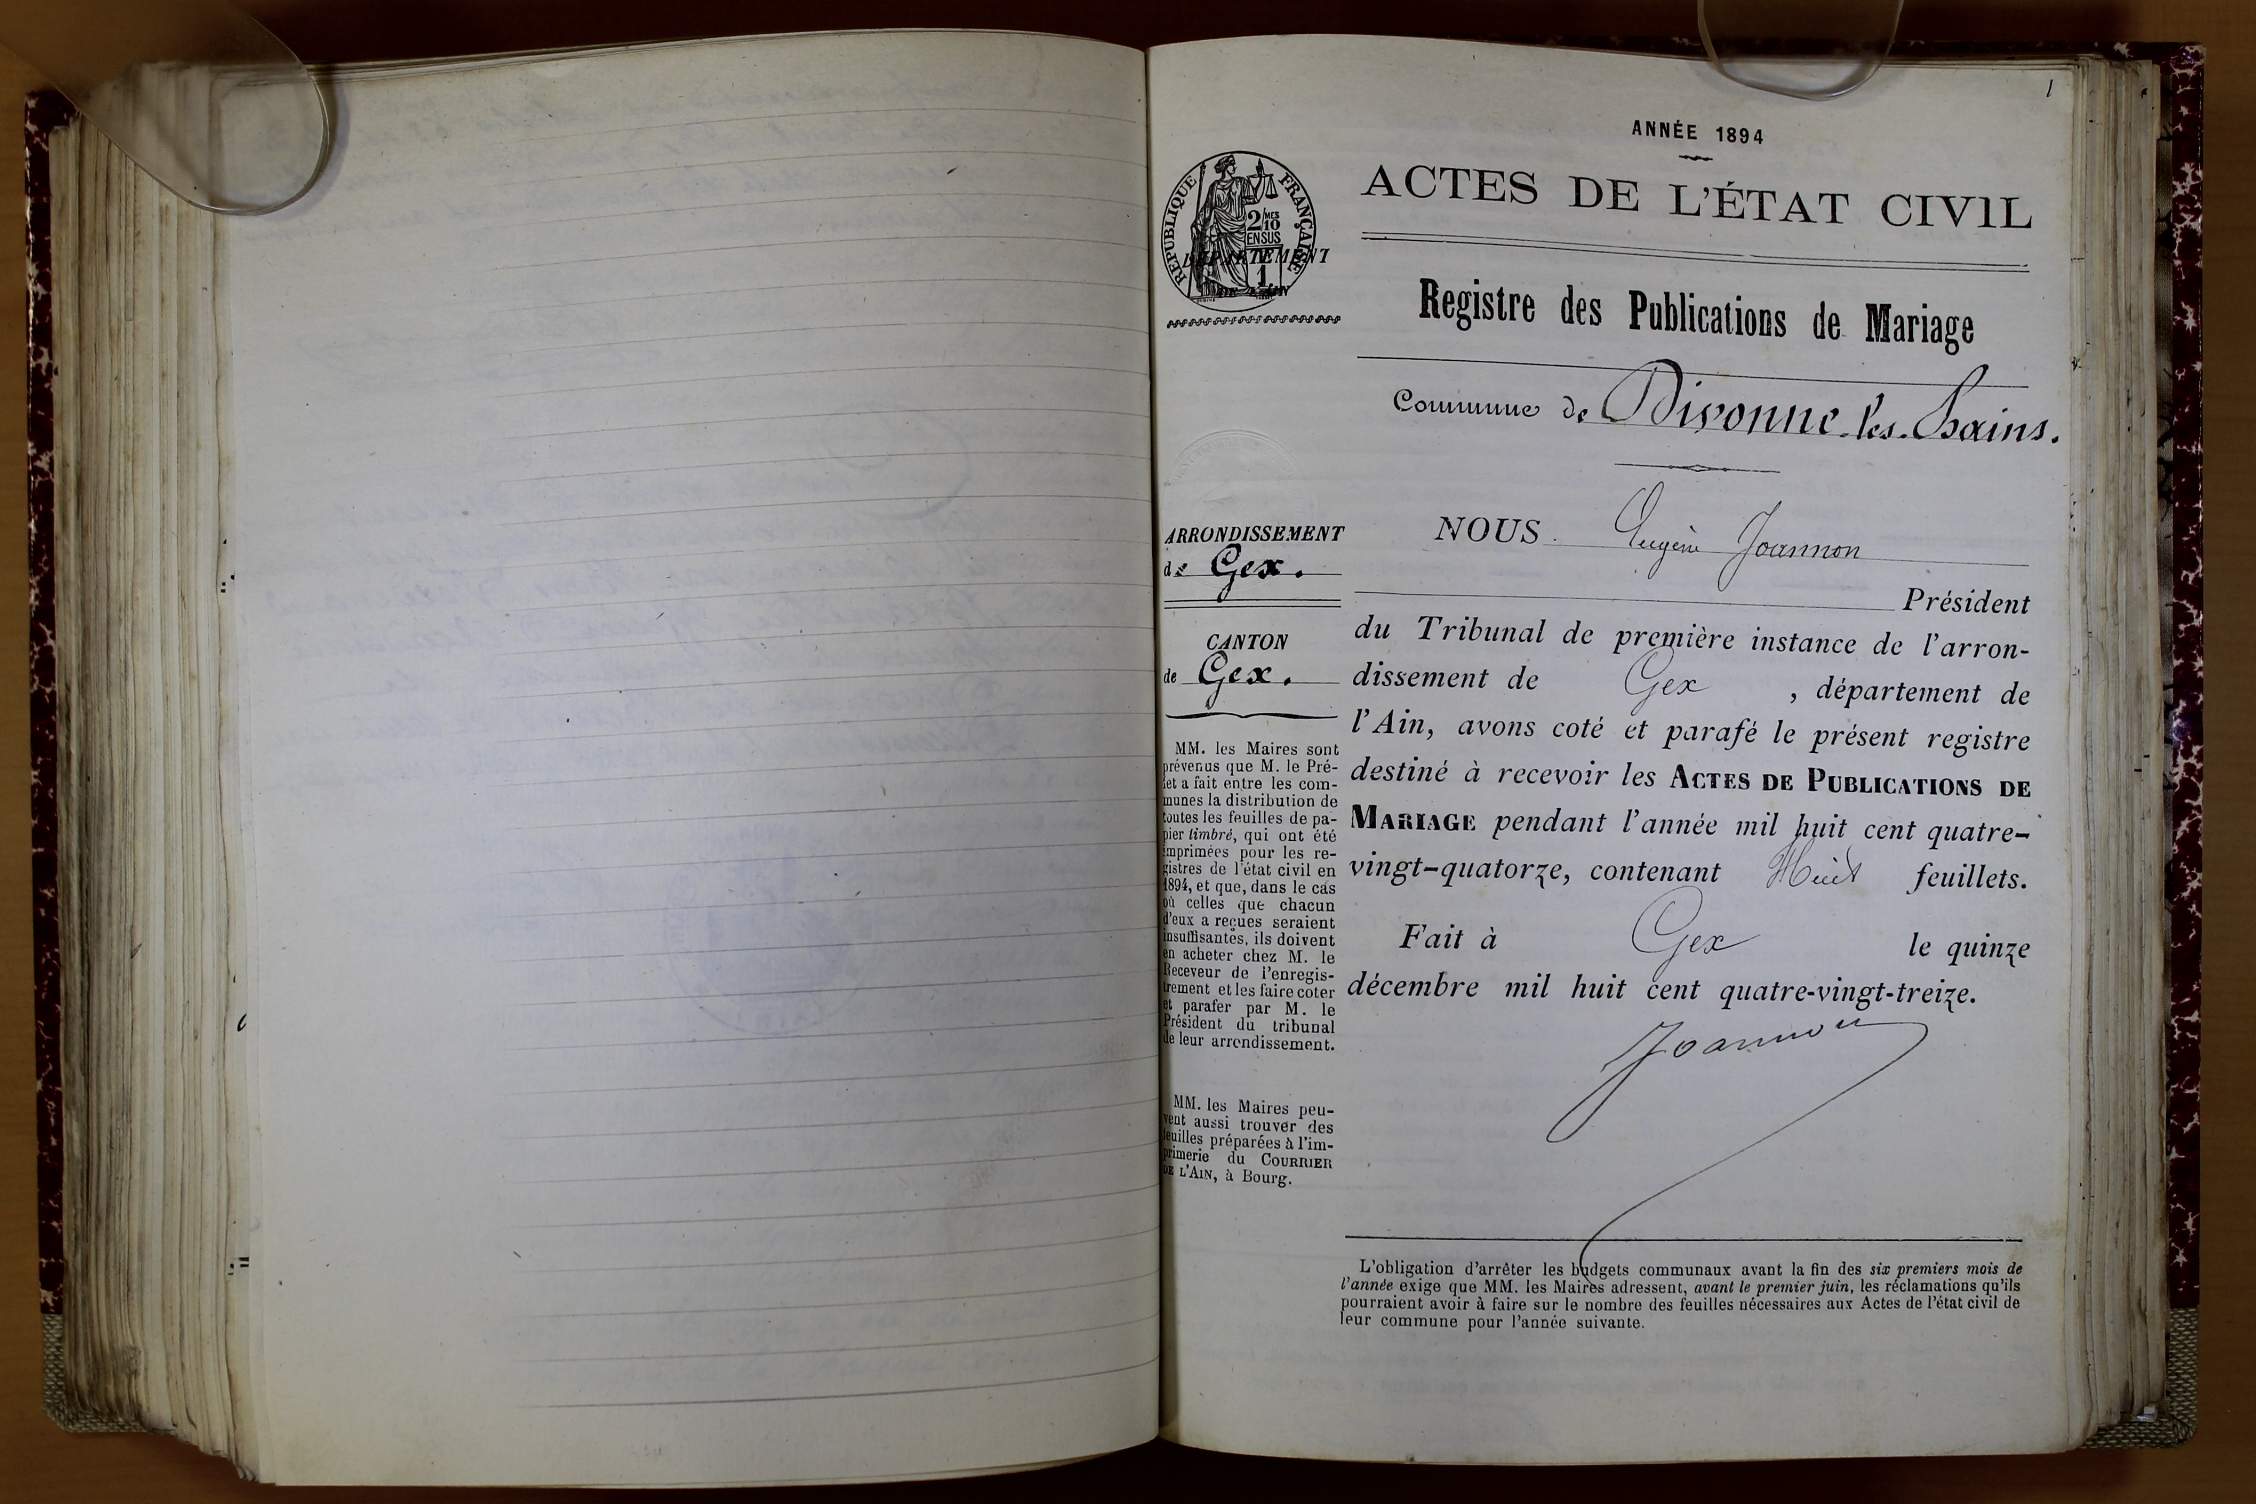 1
ANNÉE 1894
ACTES DE L'ÉTAT CIVIL
RÉPUBLIQUE FRANÇAISE
2/10 MES
EN SUS
1
DÉPARTEMENT
DE L'AIN
Registre des Publications de Mariage
Commune de Divonne-les-Bains.
ARRONDISSEMENT
de Gex.
CANTON
de Gex.
MM. les Maires sont
prévenus que M. le Pré-
fet a fait entre les com-
munes la distribution de
toutes les feuilles de pa-
pier timbré, qui ont été
imprimées pour les re-
gistres de l'état civil en
1894, et que, dans le cas
où celles que chacun
d'eux a reçues seraient
insuffisantes, ils doivent
en acheter chez M. le
Receveur de l'enregis-
trement et les faire coter
et parafer par M. le
Président du tribunal
de leur arrondissement.
MM. les Maires peu-
vent aussi trouver des
feuilles préparées à l'im-
primerie du COURRIER
DE L'AIN, à Bourg.
NOUS Eugène Joannon
Président
du Tribunal de première instance de l'arron-
dissement de Gex, département de
l'Ain, avons coté et parafé le présent registre
destiné à recevoir les ACTES DE PUBLICATIONS DE
MARIAGE pendant l'année mil huit cent quatre-
vingt-quatorze, contenant Huit feuillets.
Fait à Gex le quinze
décembre mil huit cent quatre-vingt-treize.
Joannon
L'obligation d'arrêter les budgets communaux avant la fin des six premiers mois de
l'année exige que MM. les Maires adressent, avant le premier juin, les réclamations qu'ils
pourraient avoir à faire sur le nombre des feuilles nécessaires aux Actes de l'état civil de
leur commune pour l'année suivante.